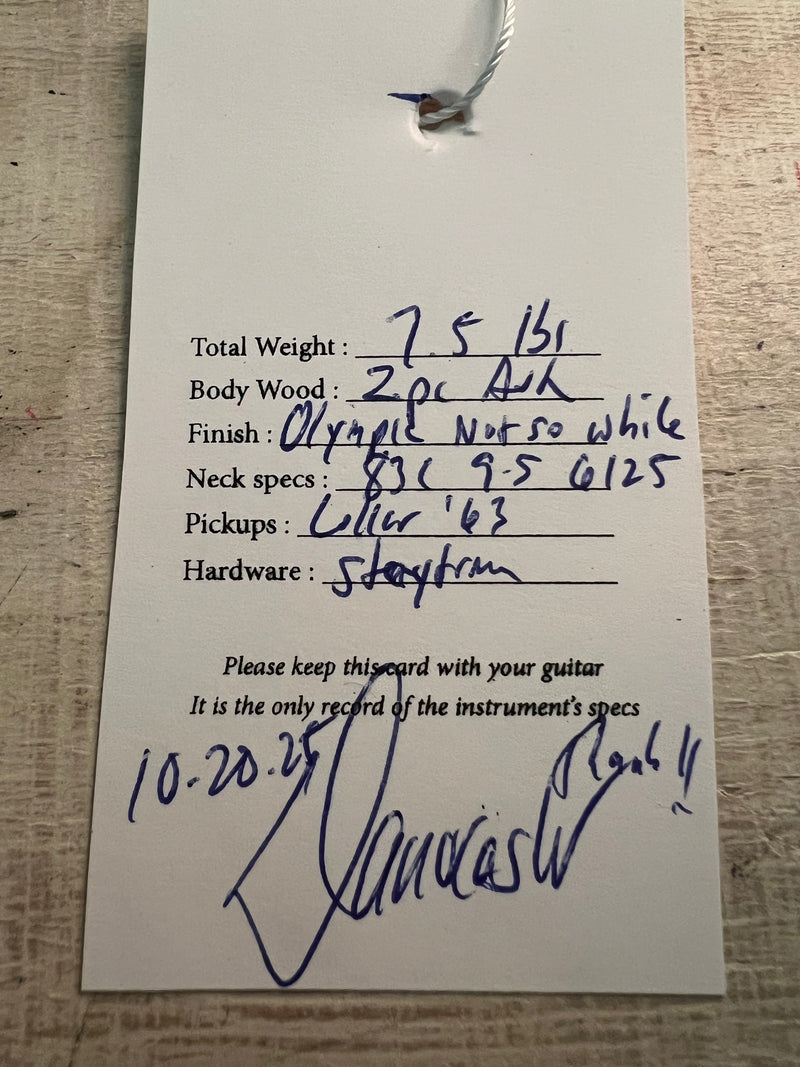 Total Weight : 7.5 lbs
Body Wood : 2pc Ash
Finish : Olympic Not so white
Neck specs : 83C 9.5 6125
Pickups : Lollar '63
Hardware : Staytrem
Please keep this card with your guitar
It is the only record of the instrument's specs
10.20.25
Thank !!